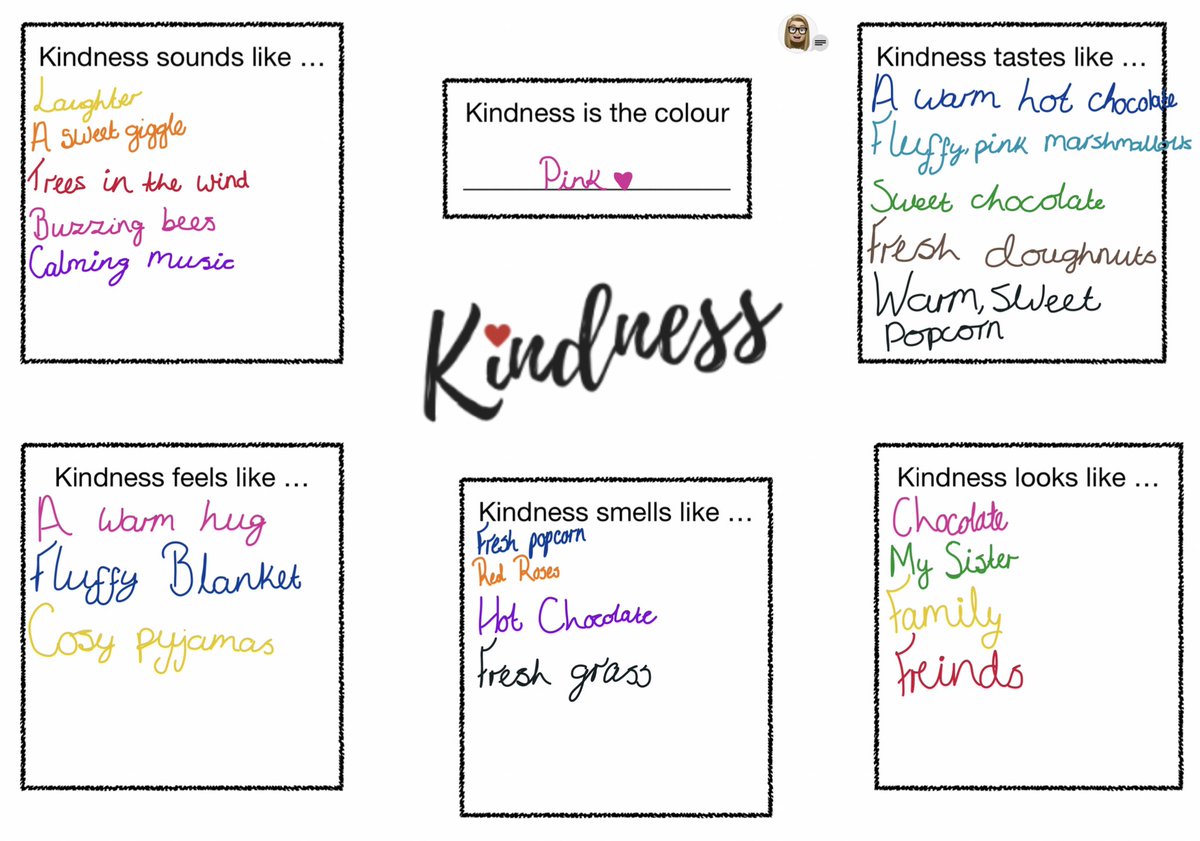 Kindness sounds like …
Laughter
A sweet giggle
Trees in the wind
Buzzing bees
Calming music
Kindness is the colour
Pink
Kindness tastes like …
A warm hot chocolate
Fluffy, pink marshmallows
Sweet chocolate
Fresh doughnuts
Warm, sweet
Popcorn
Kindness
Kindness feels like …
A warm hug
Fluffy Blanket
Cosy pyjamas
Kindness smells like …
Fresh popcorn
Red Roses
Hot Chocolate
Fresh grass
Kindness looks like …
Chocolate
My Sister
Family
Freinds